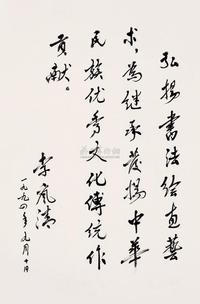 弘揚書法绘画藝
术，為继承发揚中華
民族优秀文化傳統作
贡献。
李岚清
一九九四年九月十日